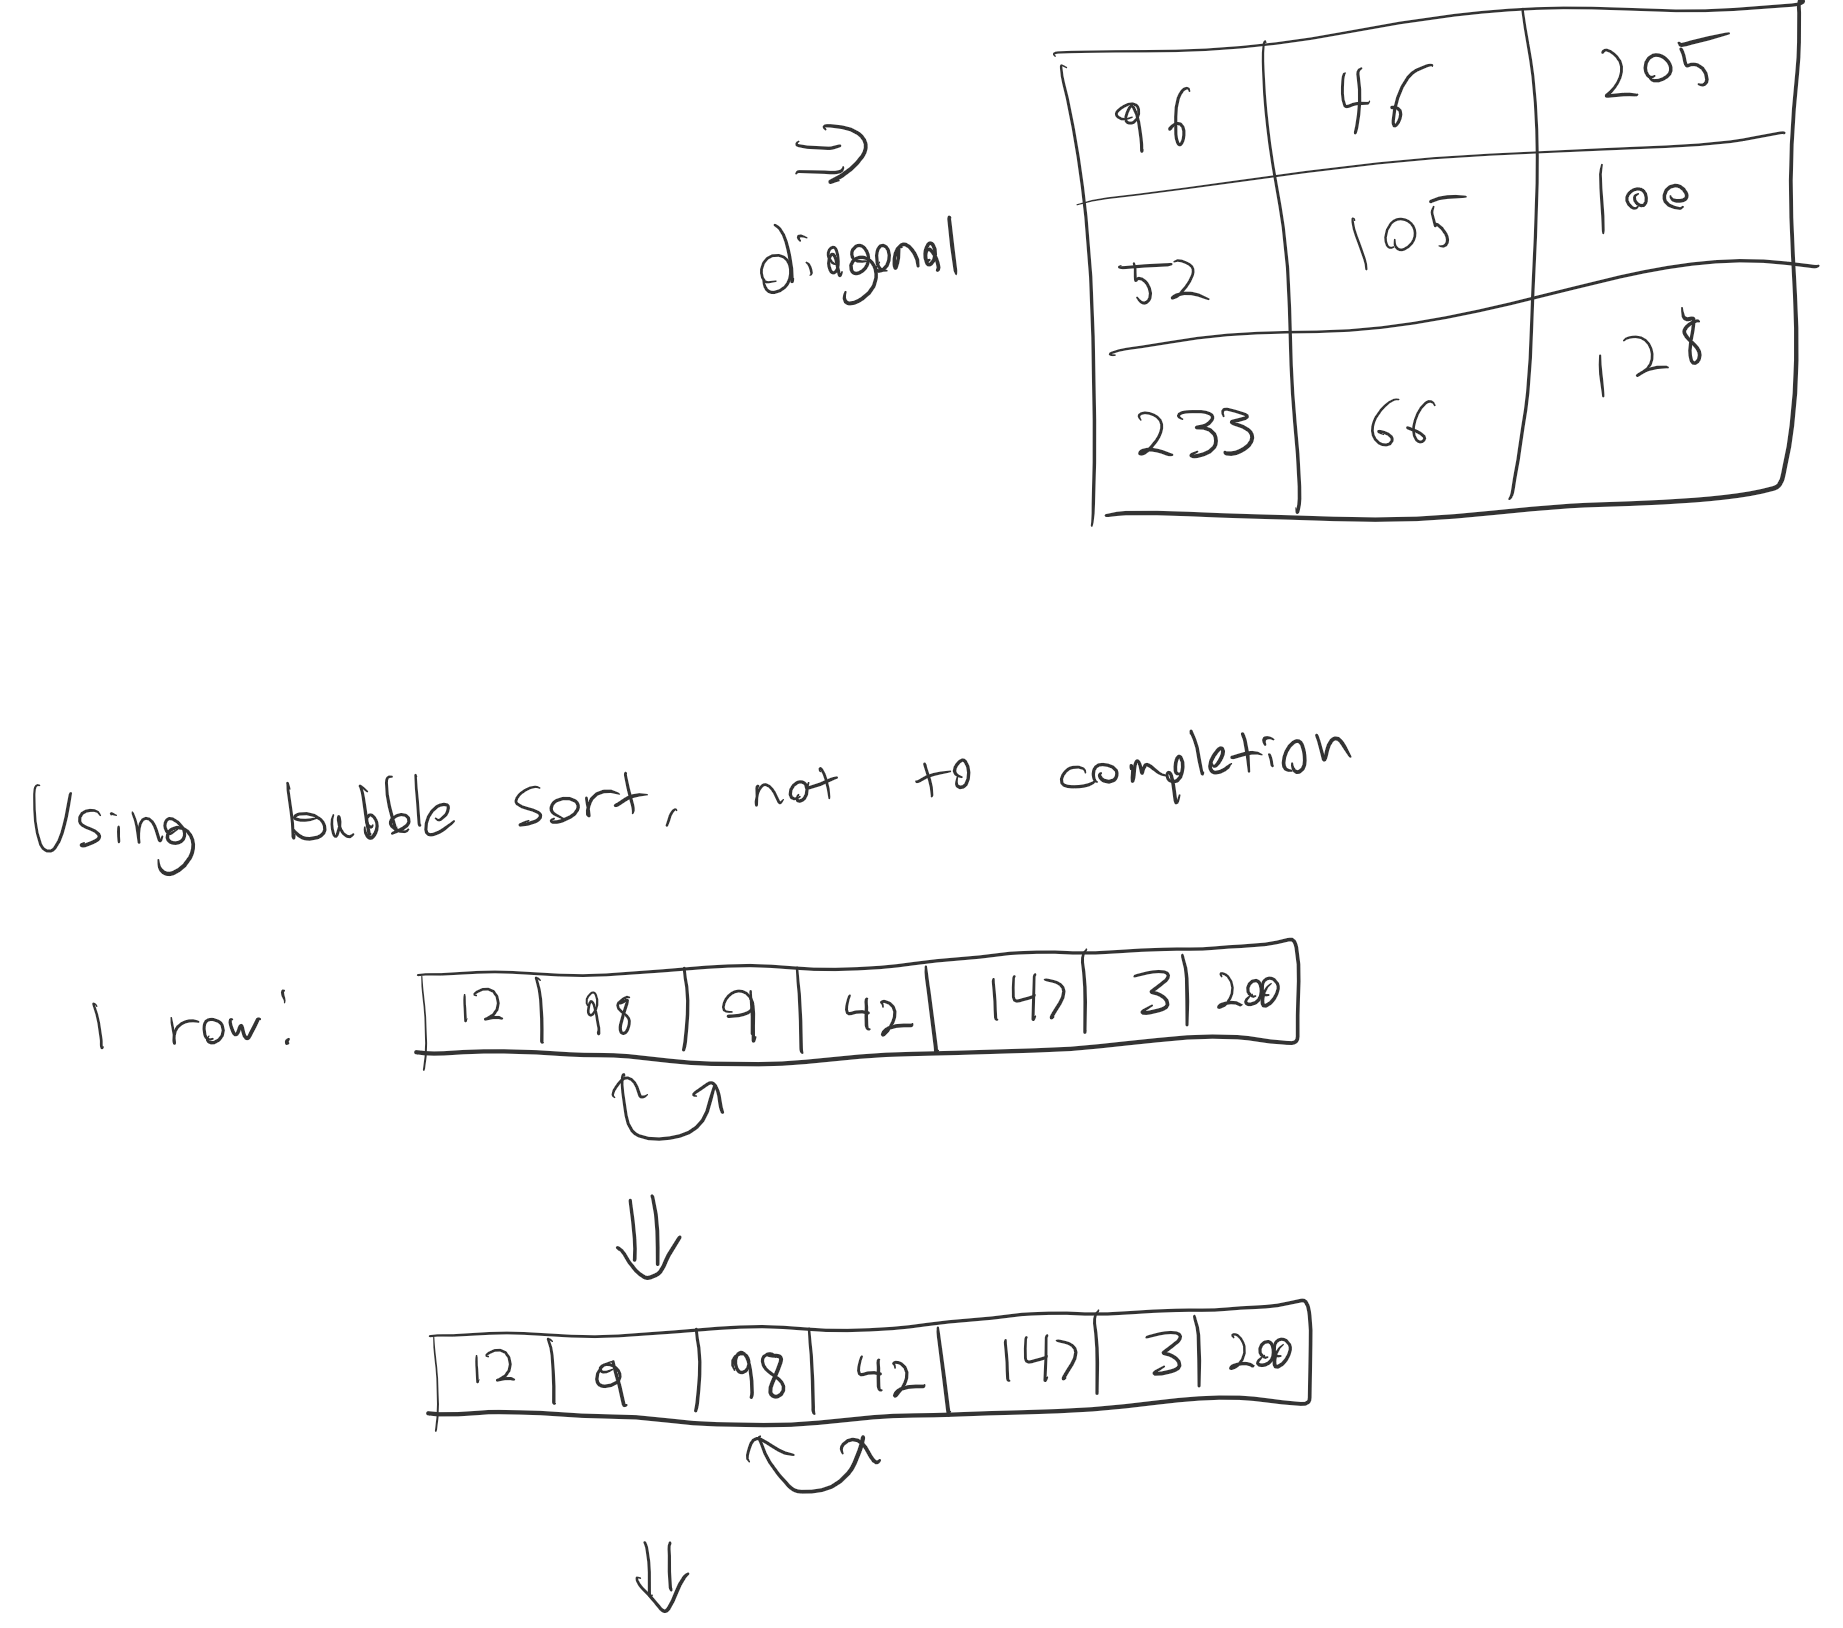 96 46 205
⇒
diagonal
52 105 100
233 66 128
Using bubble sort, not to completion
1 row: 12 98 9 42 147 3 200
⇓
12 9 98 42 147 3 200
⇓